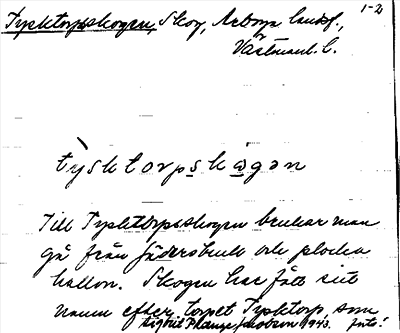 1-2
Tysktorpsskogen, Skog, Arboga landsf.,
Västmanl. l.
tỳsktorpskωgən
Till Tysktorpsskogen brukar man
gå från Jädersbruk och plocka
hallon. Skogen har fått sitt
namn efter torpet Tysktorp, som
1943. forts.!